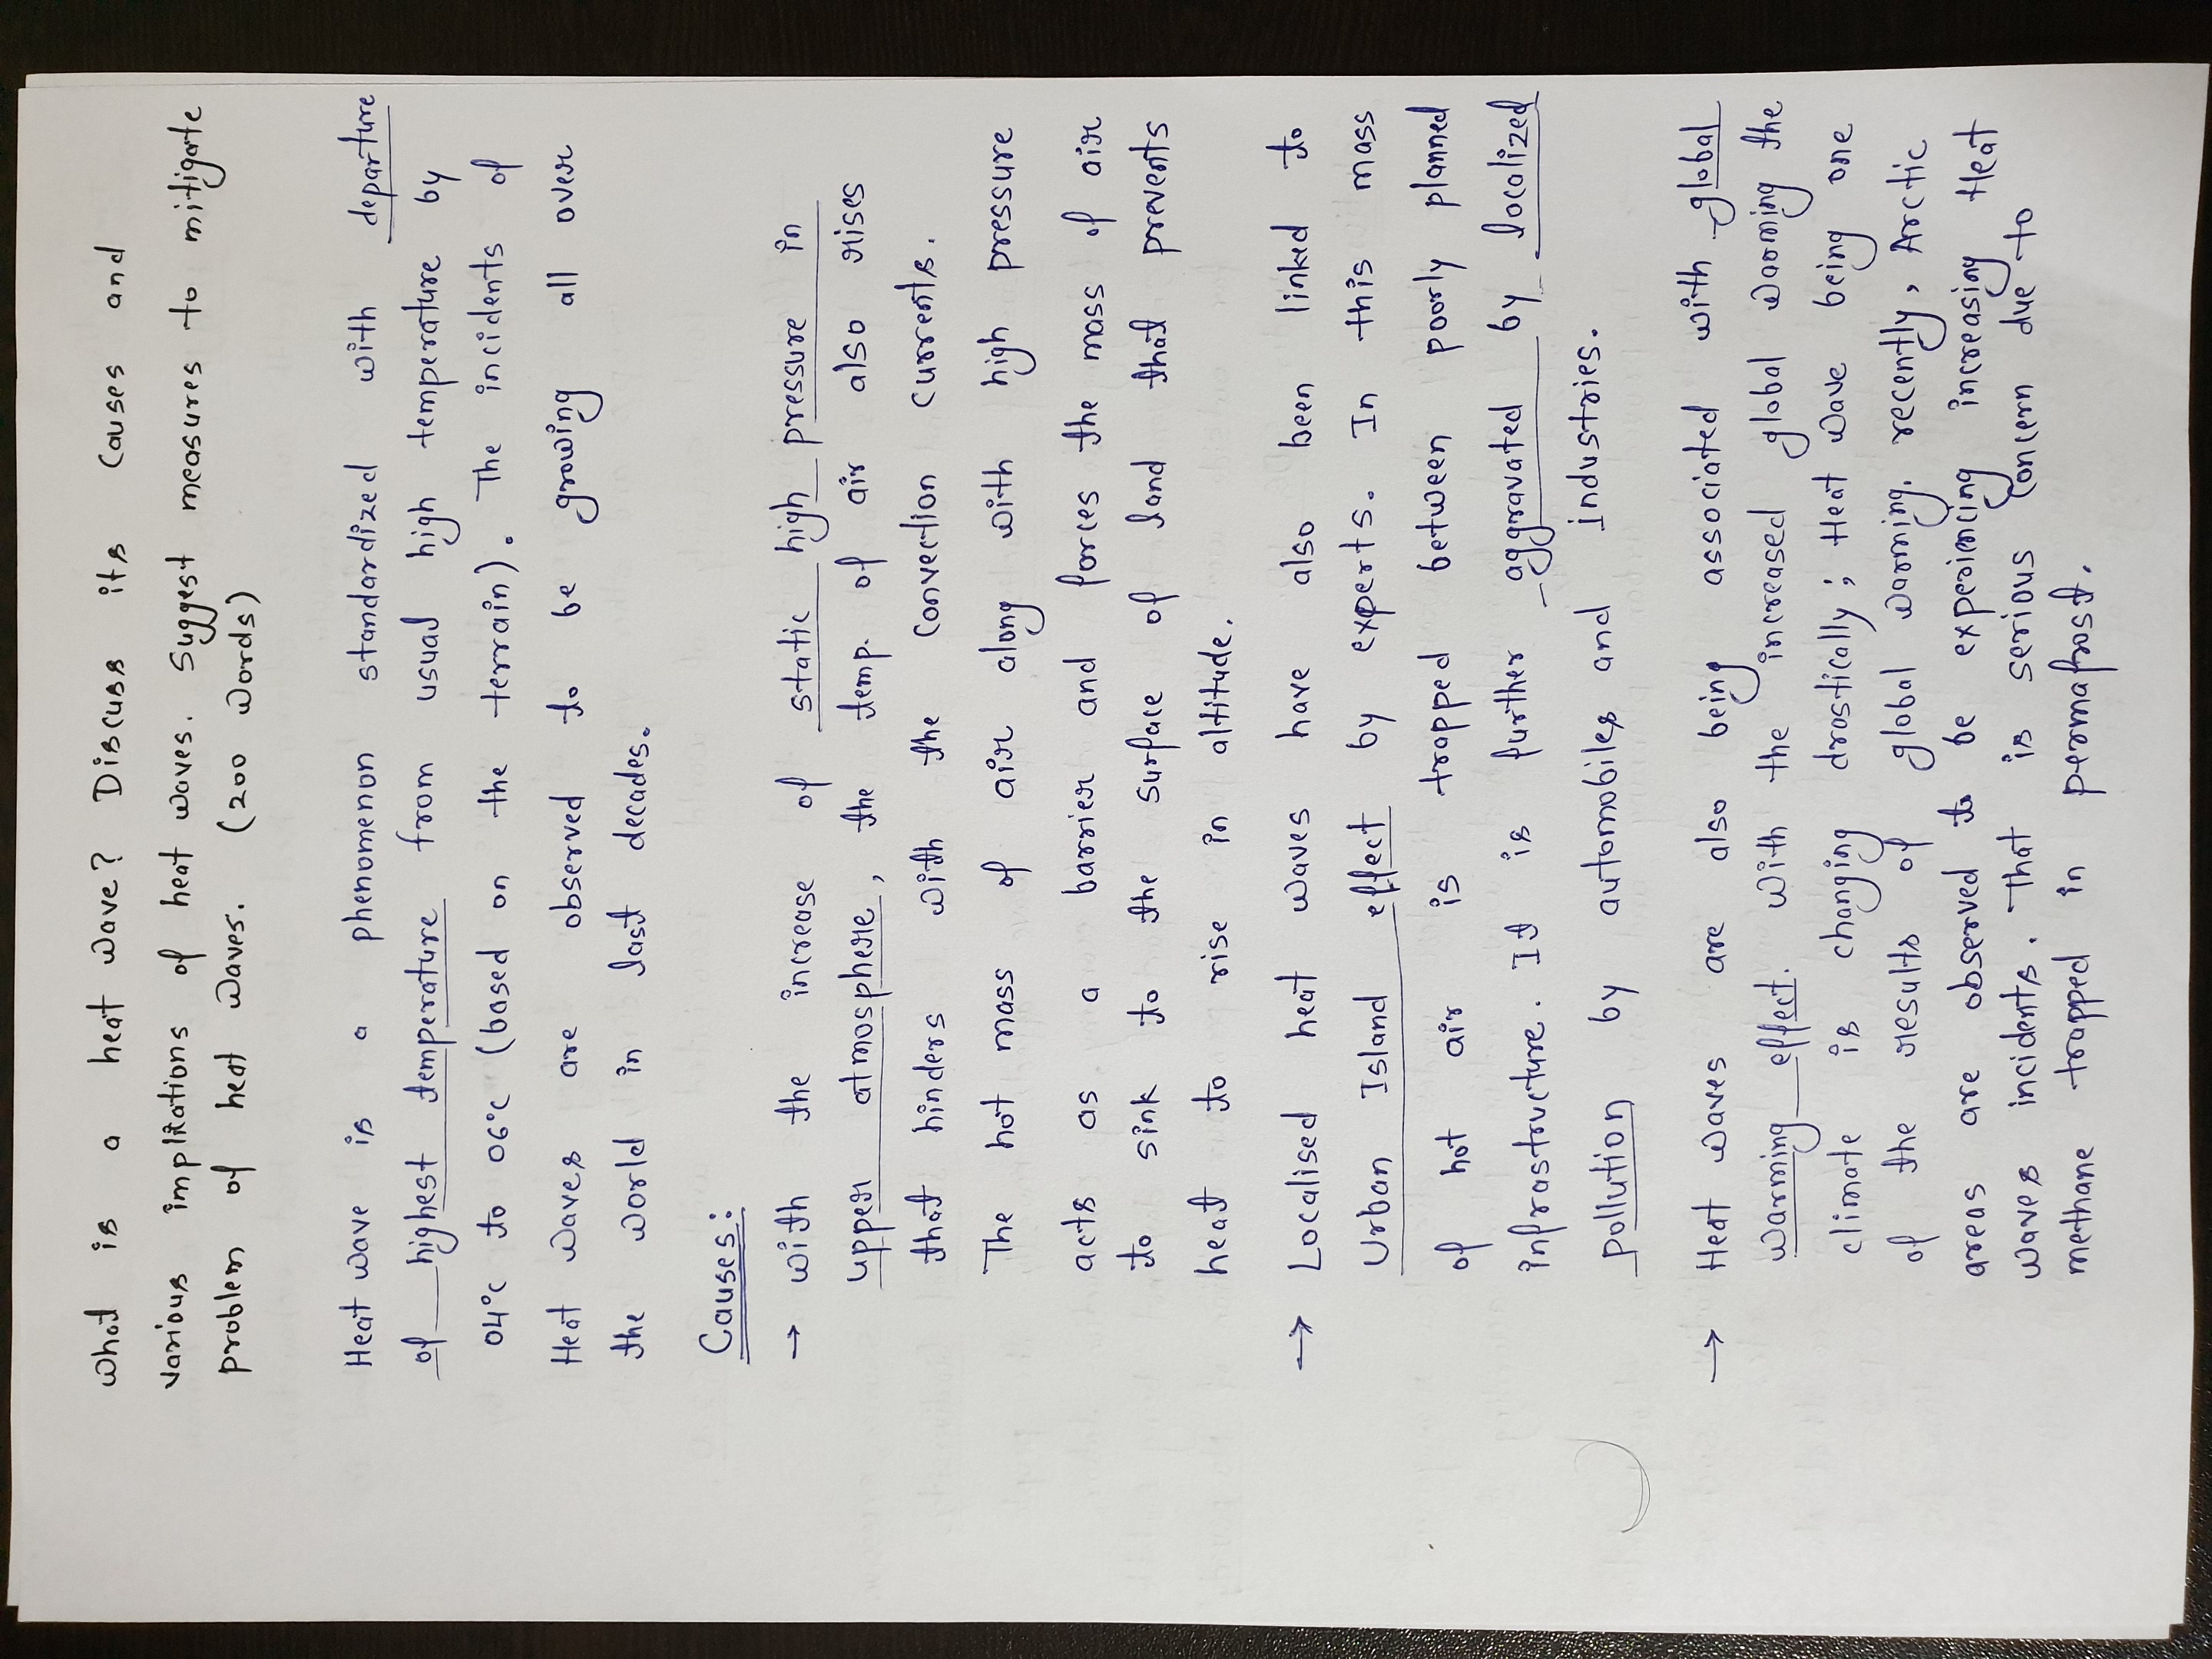 What is a heat wave? Discuss its causes and
various implications of heat waves. Suggest measures to mitigate
problem of heat waves. (200 words)
Heat wave is a phenomenon standardized with departure
of highest temperature from usual high temperature by
04°c to 06°c (based on the terrain). The incidents of
Heat waves are observed to be growing all over
the world in last decades.
Causes:
→ with the increase of static high pressure in
upper atmosphere, the temp. of air also rises
that hinders with the convection currents.
The hot mass of air along with high pressure
acts as a barrier and forces the mass of air
to sink to the surface of land that prevents
heat to rise in altitude.
→ Localised heat waves have also been linked to
Urban Island effect by experts. In this mass
of hot air is trapped between poorly planned
infrastructure. It is further aggravated by localized
pollution by automobiles and industries.
→ Heat waves are also being associated with global
warming effect. with the increased global warming the
climate is changing drastically; Heat wave being one
of the results of global warming. recently, Arctic
areas are observed to be experincing increasing Heat
waves incidents. That is serious concern due to
methane trapped in permafrost.